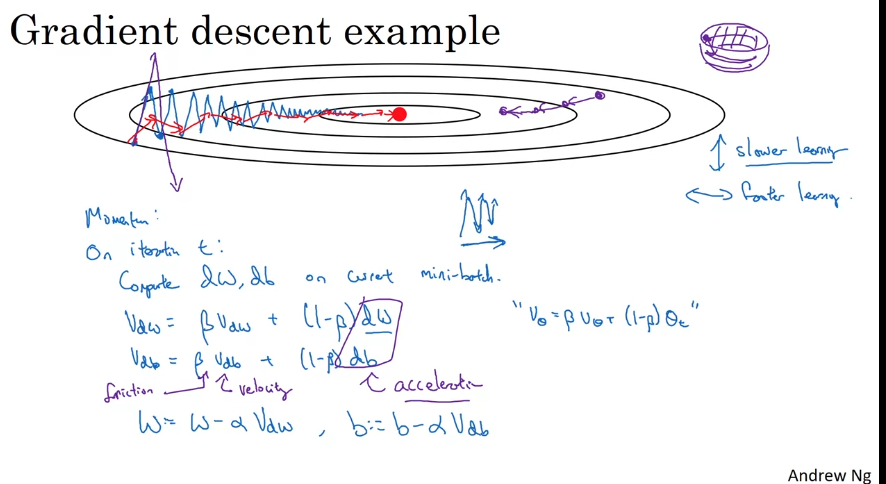 Gradient descent example
↕ slower learning
↔ faster learning.
Momentum:
On iteration t:
Compute dW, db on current mini-batch.
Vdw = β Vdw + (1-β) dW
"Vθ = β Vθ + (1-β) θt"
Vdb = β Vdb + (1-β) db
friction velocity acceleration
W = W - α Vdw , b := b - α Vdb
Andrew Ng